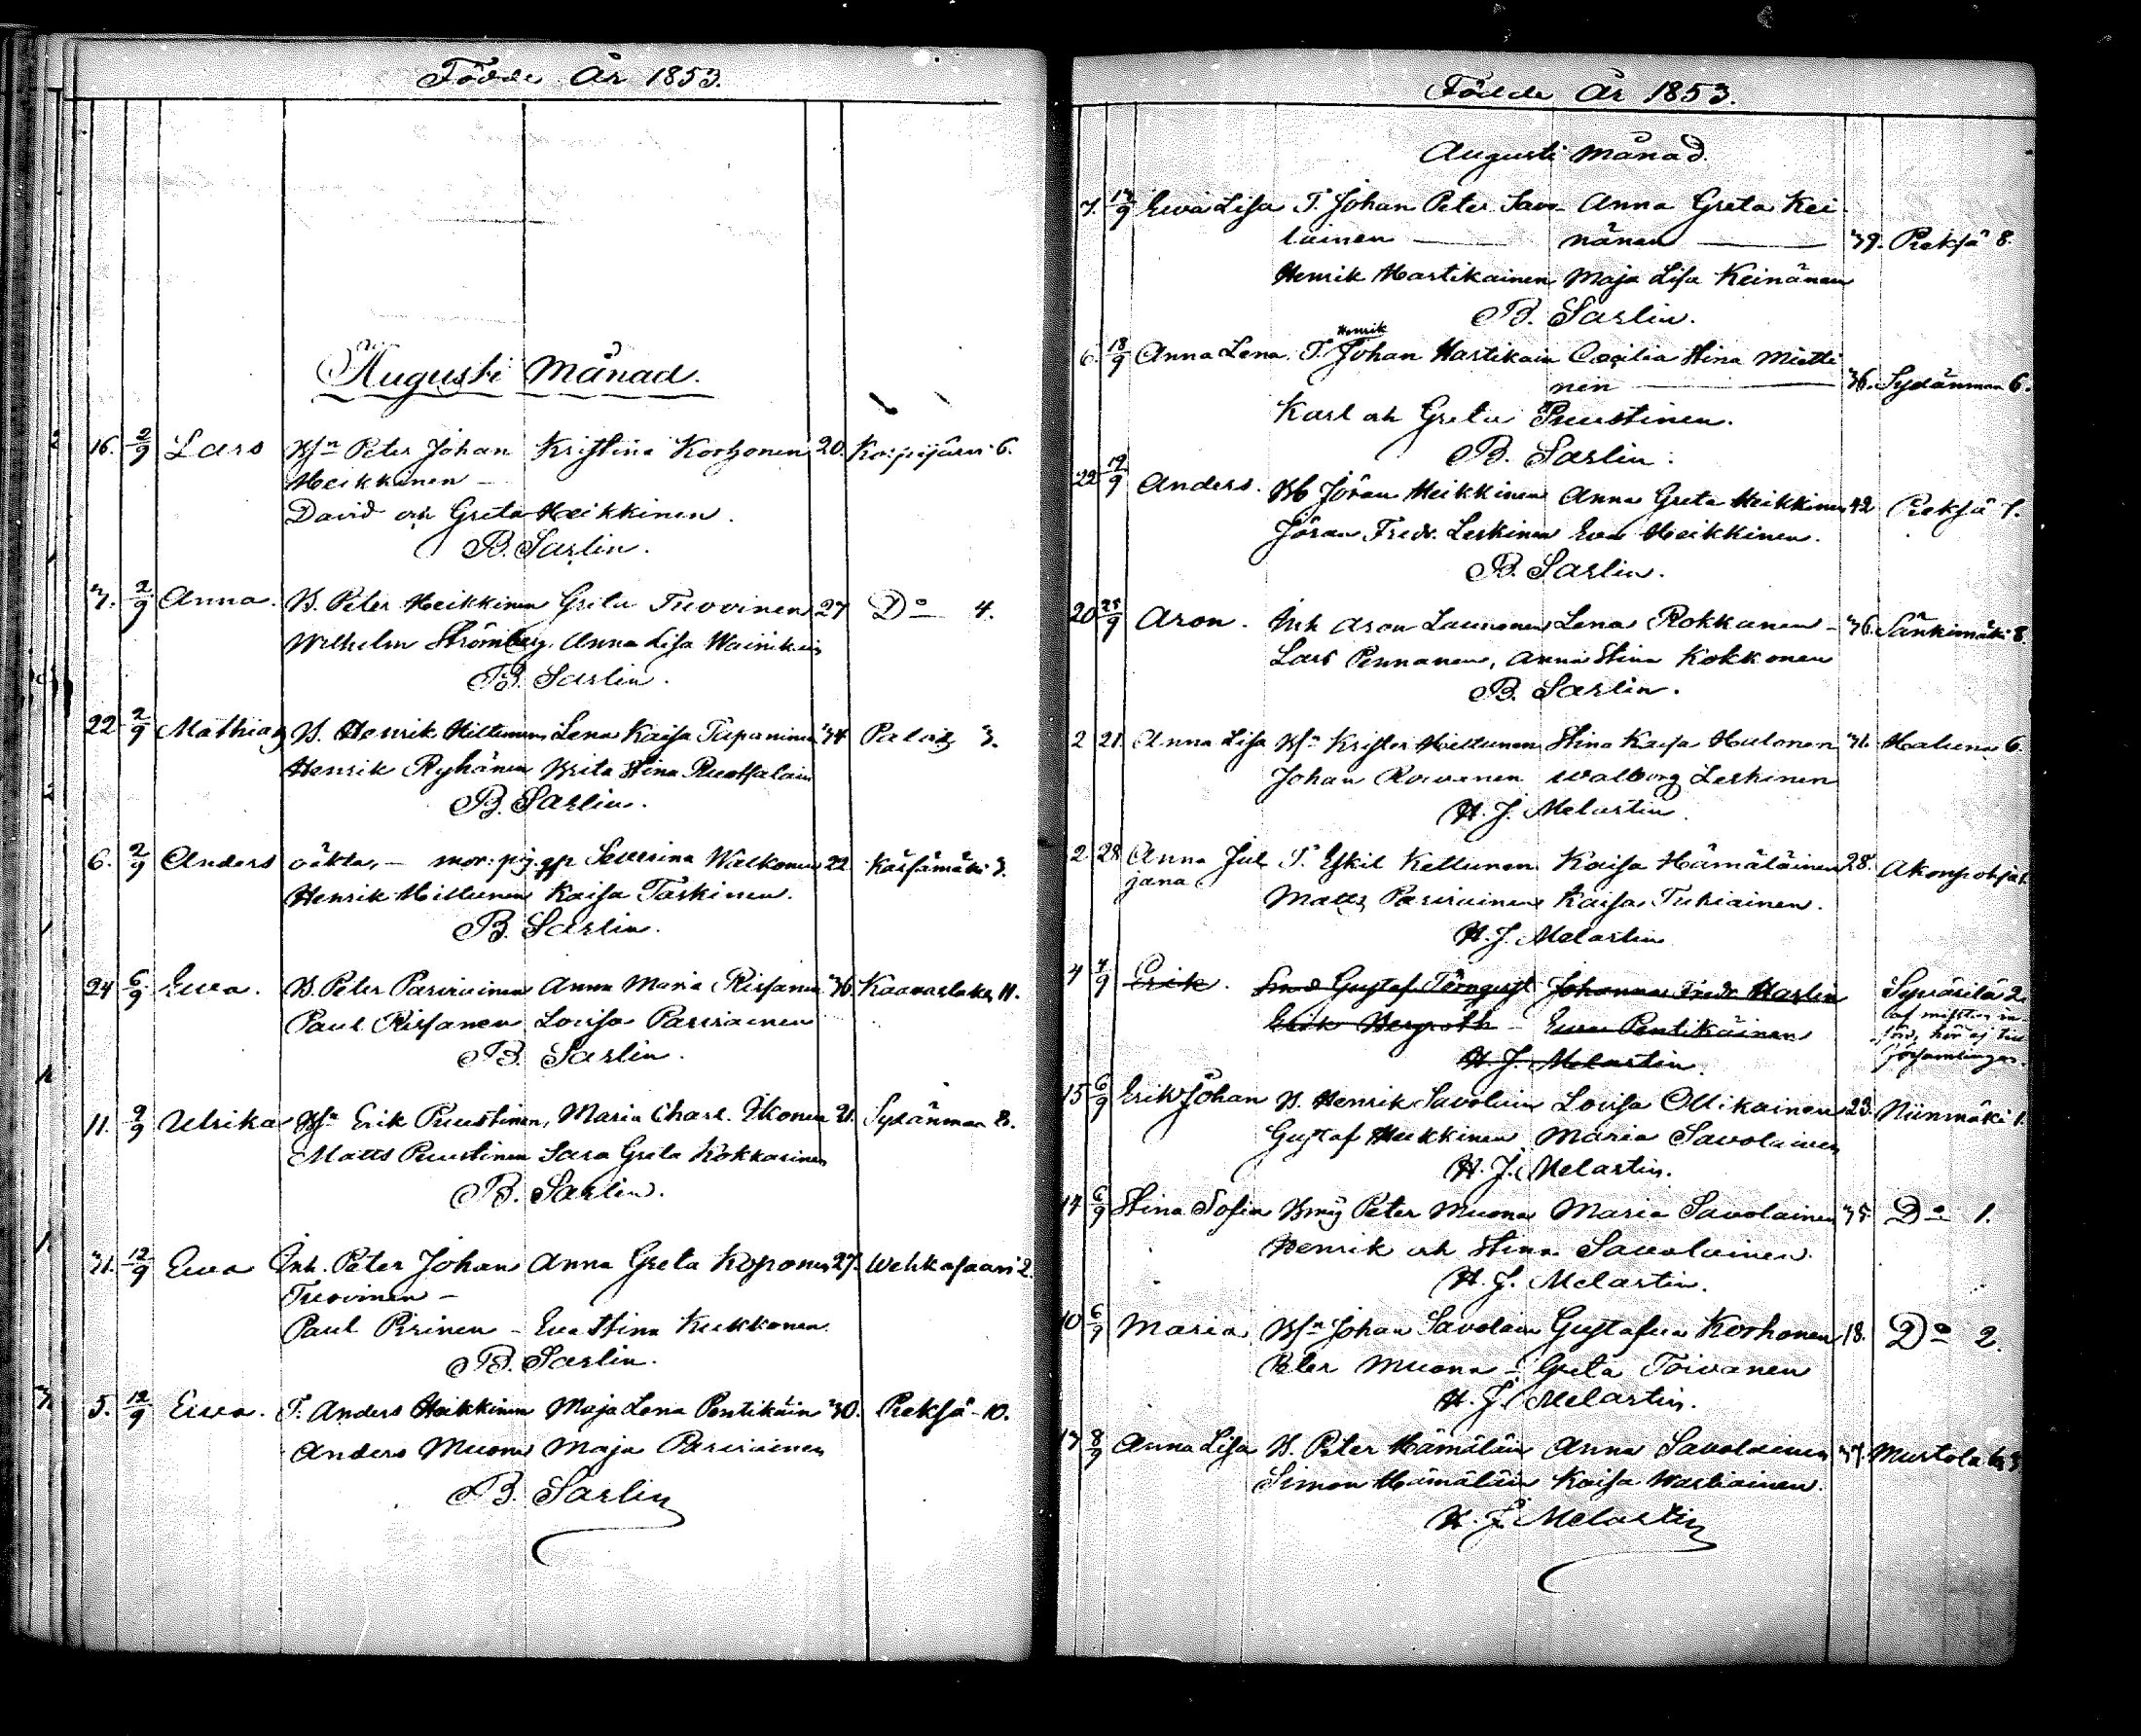 Födde År 1853.
Augusti Månad.
16. 2/9 Lars Bsn Peter Johan Kristina Korhonen 20. Korpijärvi 6.
Heikkinen -
David och Greta Heikkinen.
B. Sarlin.
7. 2/9 Anna. B. Peter Heikkinen Greta Tuovinen 27 Do 4.
Wilhelm Strömberg, Anna Lisa Wainikain
B. Sarlin.
22 2/9 Mathias B. Henrik Hiltunen Lena Kaisa Tapaninen 34 Palois 3.
Henrik Ryhänen Brita Stina Ruotsalain
B. Sarlin.
6. 2/9 Anders oäkta, - mor: pig. Severina Walkonen 22 Kärsämäki 3.
Henrik Hiltunen Kaisa Taskinen.
B. Sarlin.
24 6/9 Ewa. B. Peter Parviainen Anna Maria Rissanen 36 Kaavaslaks 11.
Paul Rissanen Lovisa Parviainen
B. Sarlin.
11. 9/9 Ulrika Bsn Erik Puustinen, Maria Charl. Ikonen 21. Sydänmaa 8.
Matts Puustinen Sara Greta Kokkarinen
B. Sarlin.
31. 12/9 Ewa Inh. Peter Johan Anna Greta Koponen 27. Wehkasaari 2.
Tuovinen -
Paul Pirinen - Eva Stina Kukkonen.
B. Sarlin.
5. 12/9 Ewa. T. Anders Heikkinen Maja Lena Pentikäin 30. Pieksä 10.
Anders Muona Maja Parviainen
B. Sarlin
Födde År 1853.
Augusti Månad.
7. 17/9 Ewa Lisa T. Johan Peter Savo- Anna Greta Kei
lainen nänen 39. Pieksä 8.
Henrik Hartikainen Maja Lisa Keinänen
B. Sarlin.
Henrik
6. 18/9 Anna Lena T. Johan Hartikain Cecilia Stina Mietti
nen 36. Sydänmaa 6.
Karl och Greta Puustinen.
B. Sarlin.
22 19/9 Anders. Bb Jöran Heikkinen Anna Greta Heikkinen 42 Pieksä 1.
Jöran Fredr. Leskinen Eva Heikkinen.
B. Sarlin.
20 25/9 Aron. Inh Aron Launonen Lena Rokkanen - 36. Sänkimäki 8.
Lars Pennanen, Anna Stina Kokkonen
B. Sarlin.
2 21. Anna Lisa Bsn Krister Hiltunen Stina Kaisa Hulonen 31. Haluna 6.
Johan Rouvanen Walborg Leskinen
H. J. Melartin.
2 28 Anna Jul T. Eskil Kettunen Kaisa Hämäläinen 28.
jana
Matts Parviainen Kaisa Tuhiainen.
H. J. Melartin
4 4/9 Erik. Smed Gustaf Törnqvist Johanna Fredr Haslin Syvärilä 2.
Erik Bergroth - Eva Pentikäinen
H. J. Melartin.
församlingen.
15 6/9 Erik Johan B. Henrik Savolain Lovisa Ollikainen 23. Niinimäki 1.
Gustaf Heikkinen Maria Savolainen
H. J. Melartin.
14 6/9 Stina Sofia Bmåg Peter Muona Maria Savolainen 35. Do 1.
Henrik och Stina Savolainen.
H. J. Melartin.
10 6/9 Maria Bsn Johan Savolain Gustafva Korhonen 18. Do 2.
Peter Muona - Greta Toivanen
H. J. Melartin.
13 8/9 Anna Lisa B. Peter Hämäläin Anna Savolainen
Simon Hämäläin Kaisa Wartiainen.
H. J. Melartin